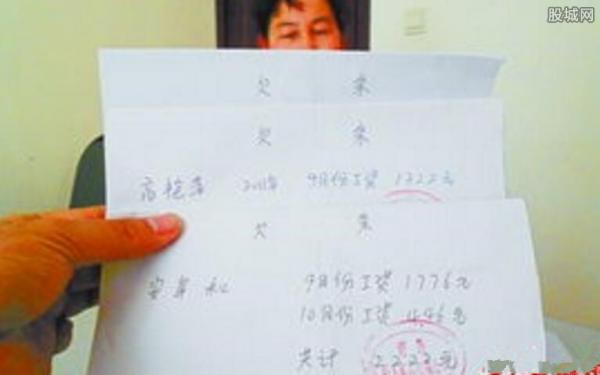 股城网
欠 条
欠 条
2011年 9月份工资 1322元
欠 条
9月份工资 1776元
10月份工资 446元
共计 2222元